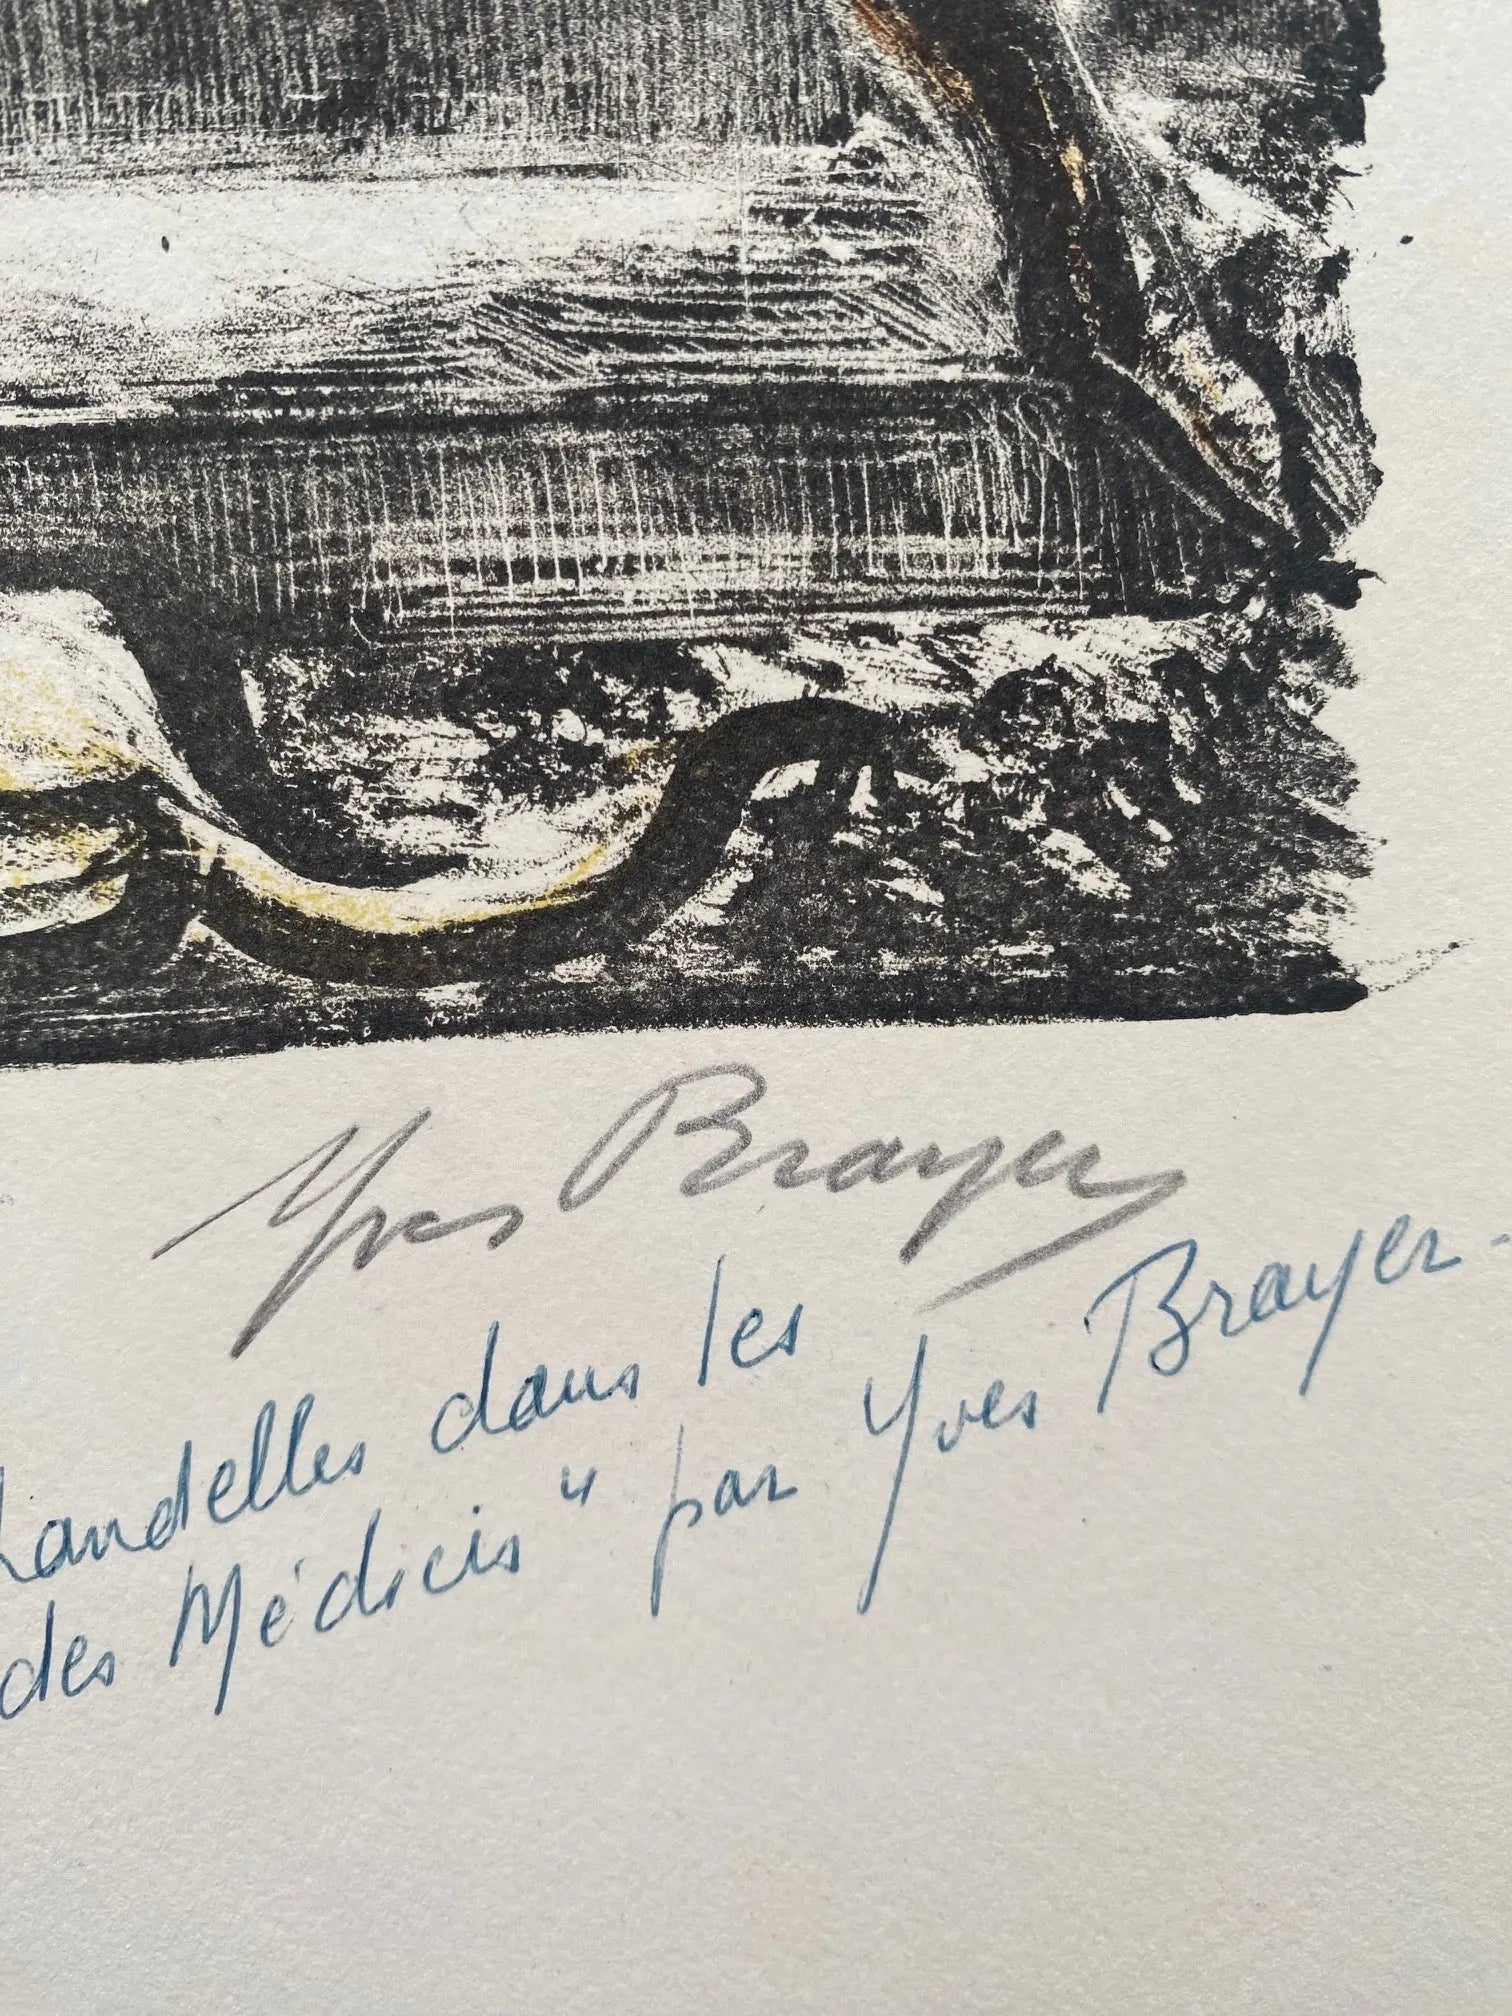 Yves Brayer
handelles dans les
des Médicis" par Yves Brayer.